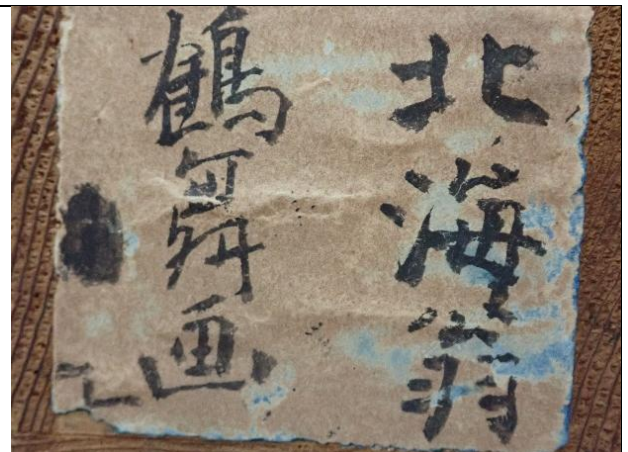 北海翁
鶴舞画